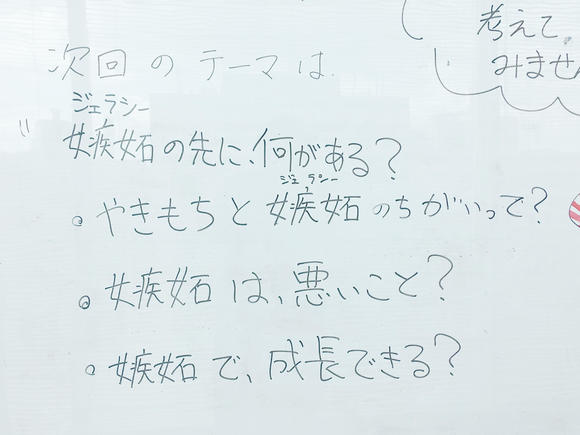 考えて
みません
次回のテーマは
ジェラシー
"嫉妬の先に、何がある?
ジェラシー
・やきもちと嫉妬のちがいって?
・嫉妬は、悪いこと?
・嫉妬で、成長できる?